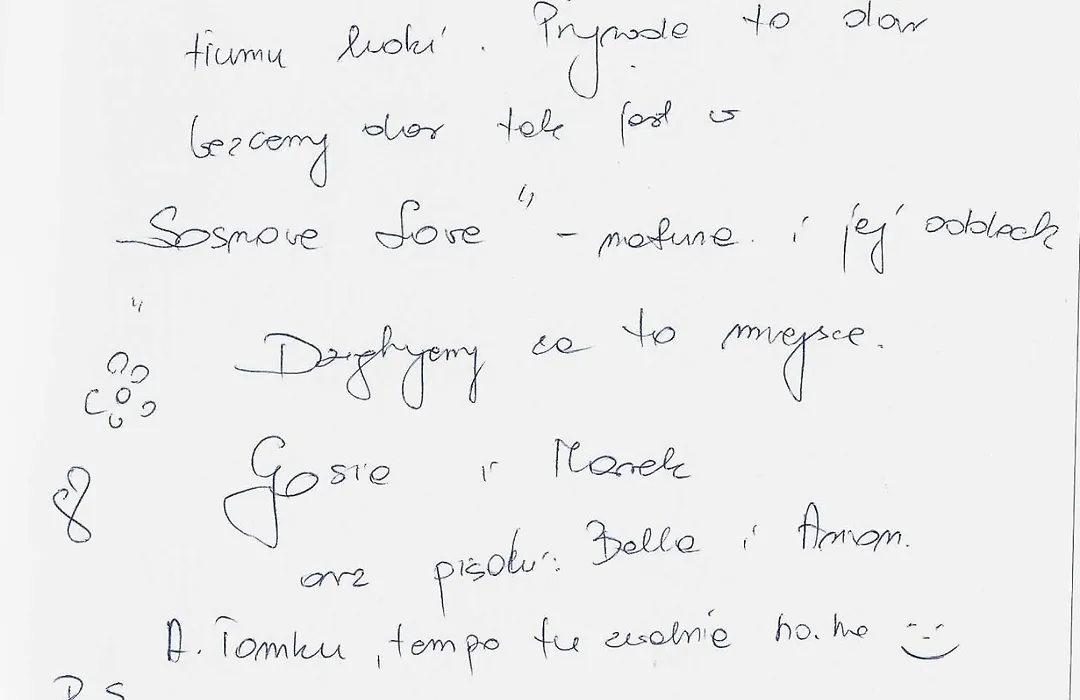 tłumu ludzi. Przyroda to dar
bezcenny dar tak jest w
Sosnove Love" - natura i jej oddech
"
Dziękujemy za to miejsce.
Gosia i Marek
oraz pieski: Bella i Amon.
A. Tomku, tempo tu zwalnia ho.ho
P.S